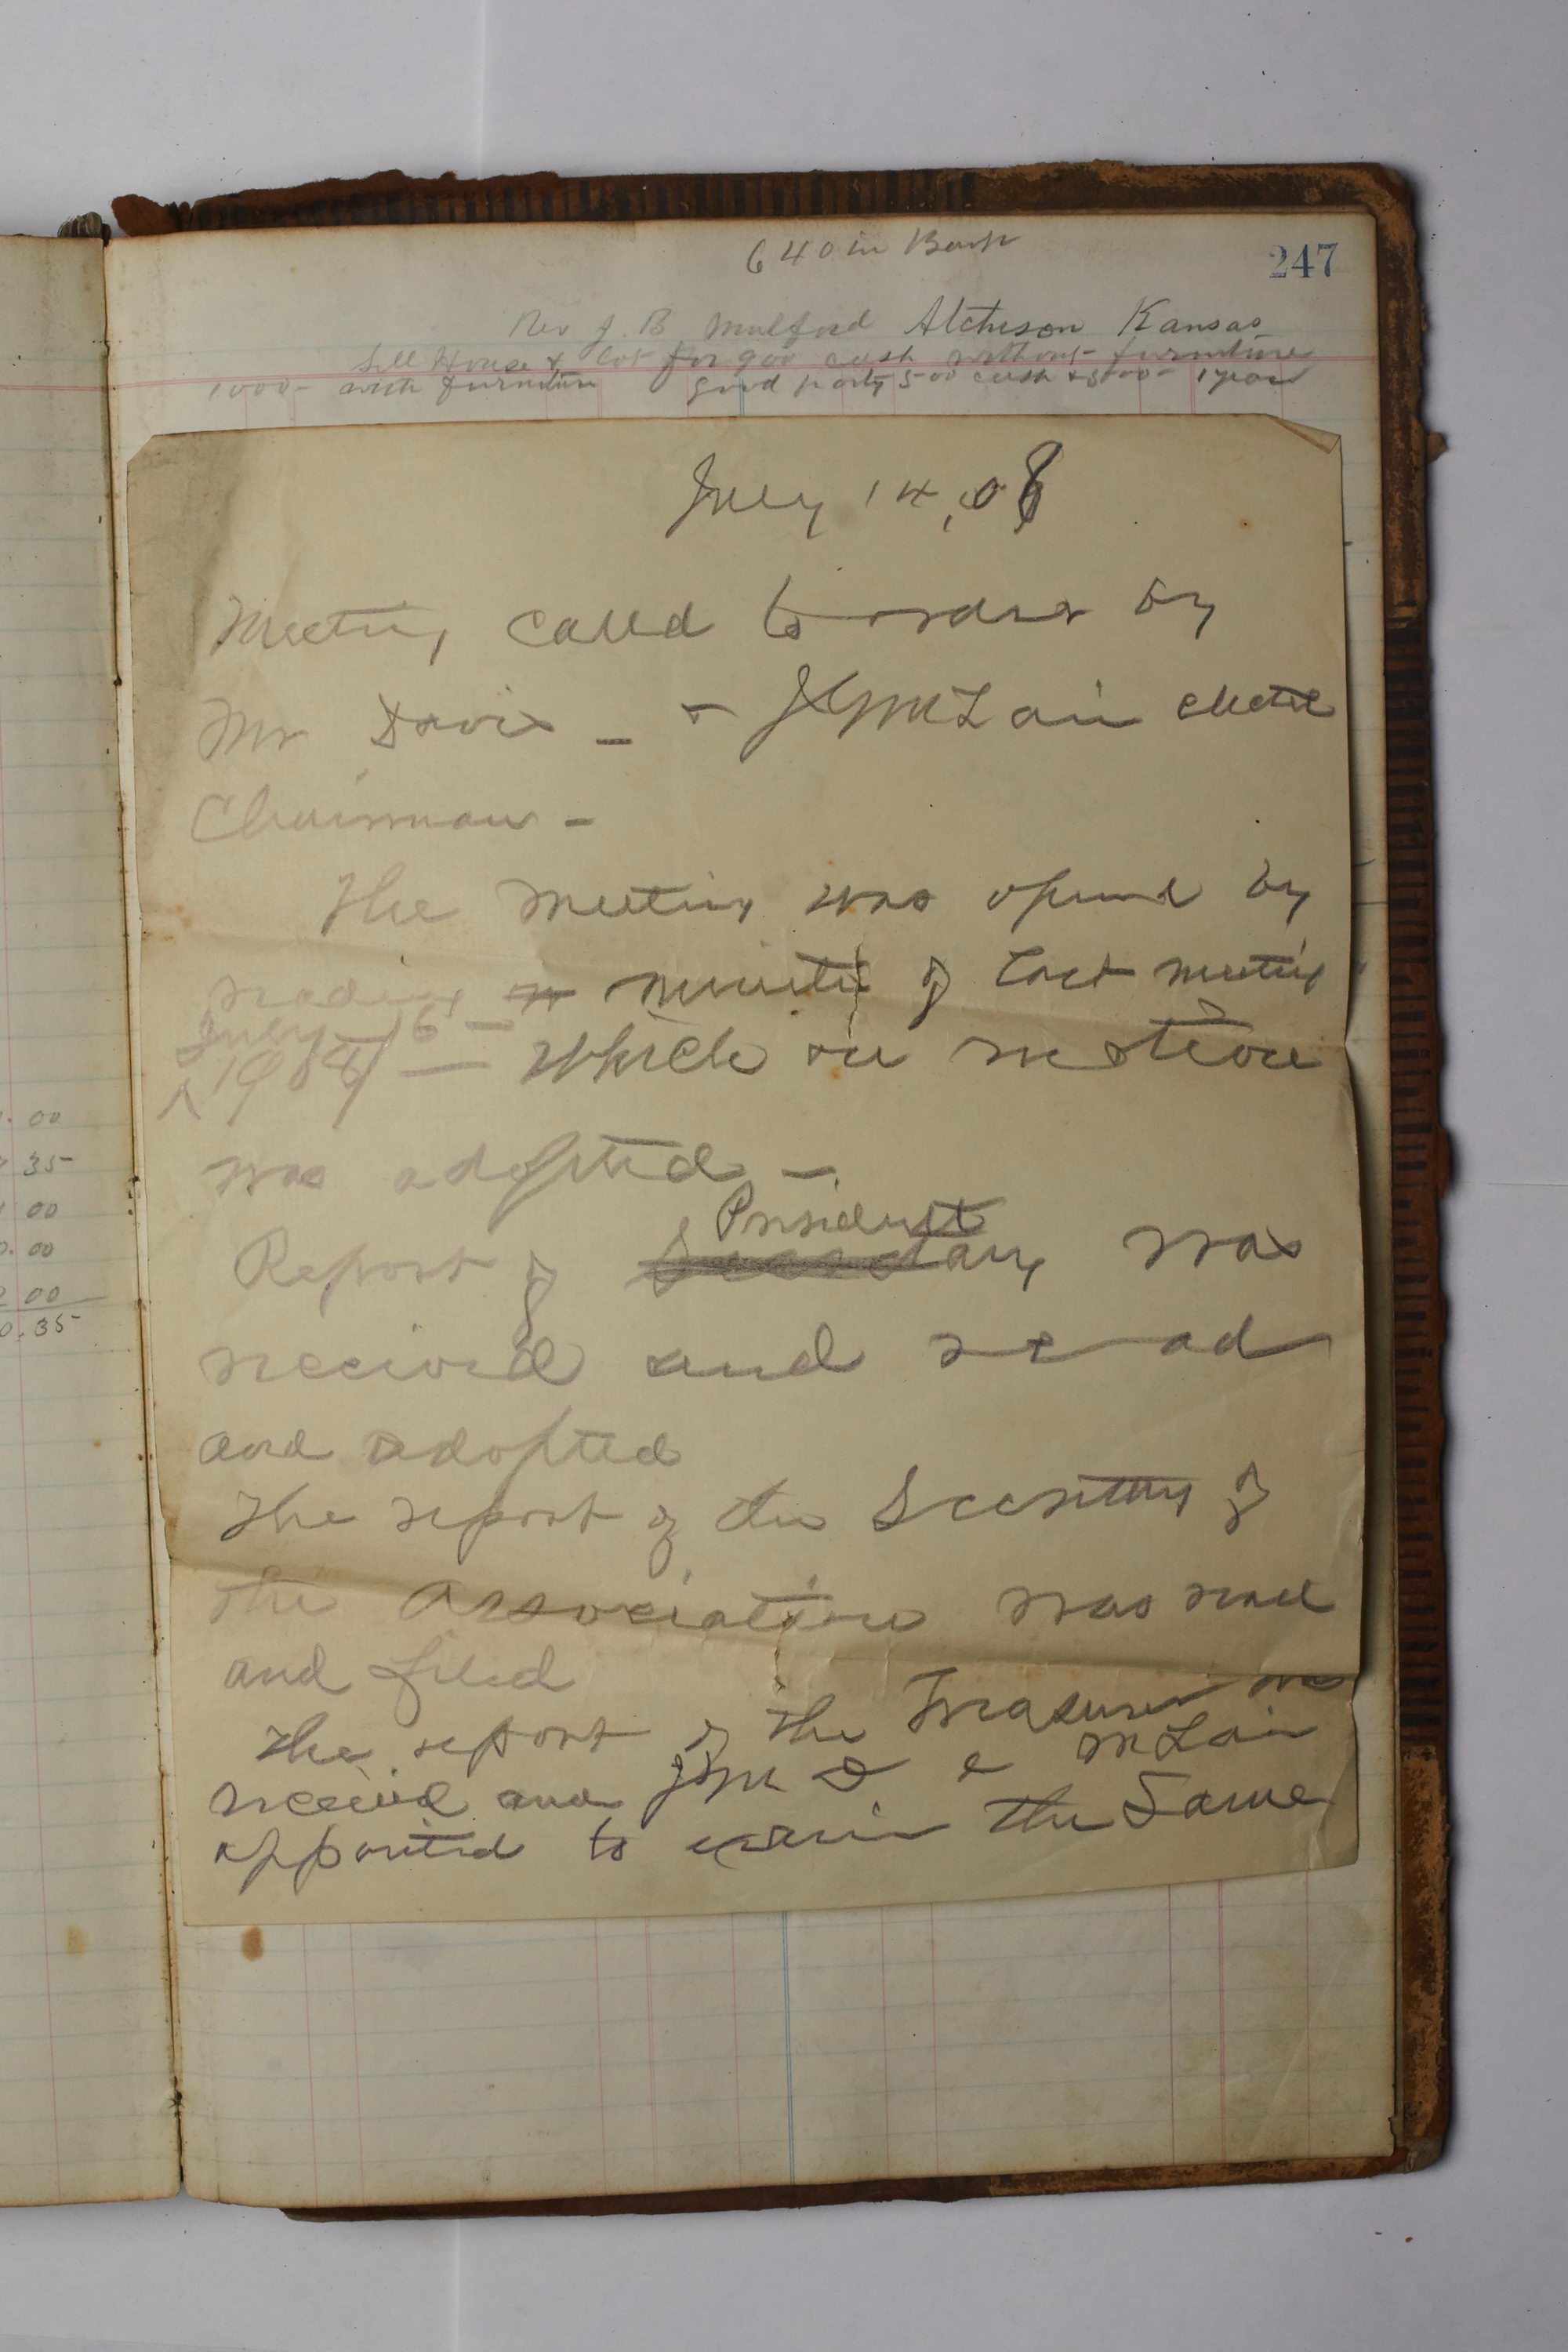 640 in Bank
247
Rev J. B Mulford Atchison Kansas
Sell House & lot for 900 cash without furniture
1000- with furniture good party 500 cash & 500- 1 year
July 14, 08
Meeting called to order by
Mr Davis - & McLain elected
Chairman -
The meeting was opened by
reading minutes of last meeting
July 16 -
1907 - which on motion
was adopted -
President
Report of Secretary was
received and read
and adopted
The report of the Secretary of
the Association was read
and filed
The report of the Treasurer
received and McLain
appointed to the Same
.00
35
00
0.00
2 00
0.35